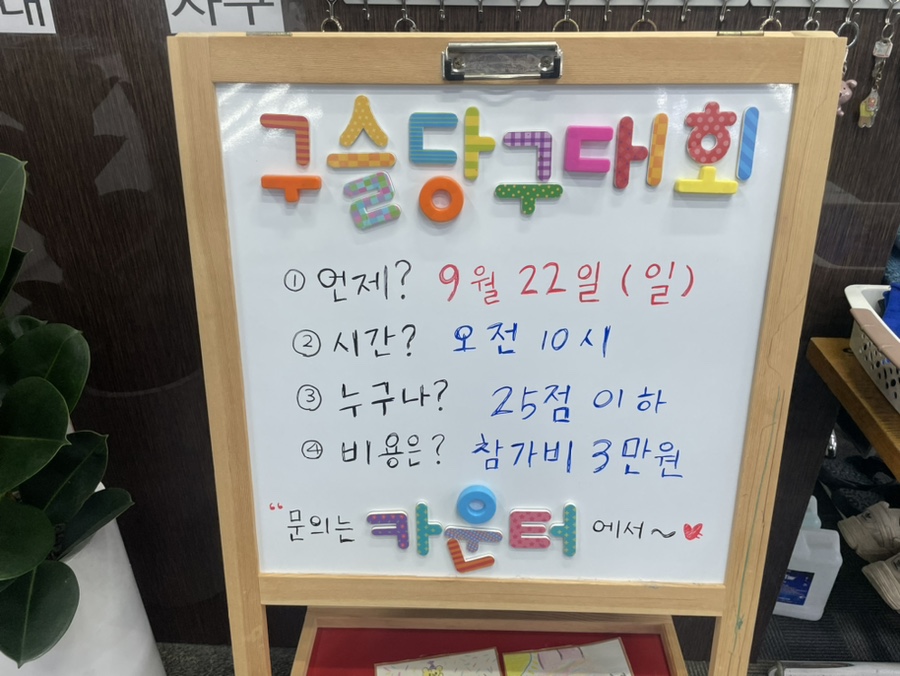 구슬당구대회
① 언제? 9월 22일 (일)
② 시간? 오전 10시
③ 누구나? 25점 이하
④ 비용은? 참가비 3만원
“문의는 카운터 에서~♥